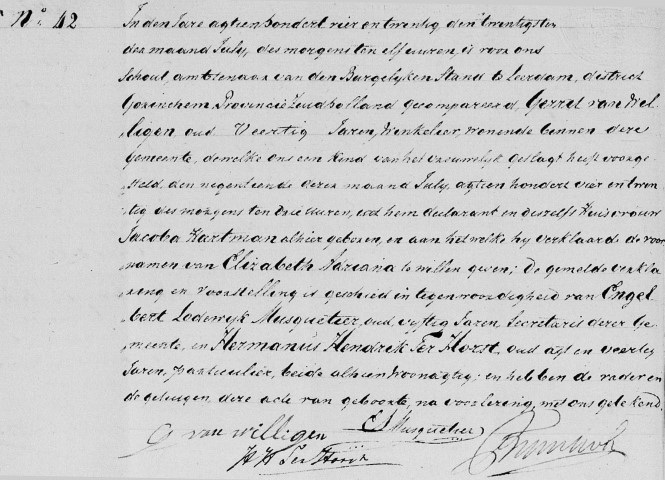 N.o 42
In den Jare agtien hondert vier en twentig den twentigsten
der maand July, des morgens ten elf euren, is voor ons
Schout, amtenaar van den Burgelyken Stand te Leerdam, district
Gorinchem, Provincie Zuidholland gecompareerd, Gerret van Wil-
ligen oud Veertig Jaren, Winkelier, wonende binnen deze
gemeente, dewelke ons een Kind van het vrouwelyk geslagt heeft voorge-
steld, den negentiende dezer maand July, agtien hondert vier en twen-
tig des morgens ten drie euren, uit hem declarant en deszelfs Huisvrouw
Jacoba Hartman alhier geboren, en aan hetwelke hy verklaarde de voor-
namen van Elizabeth Adriana te willen geven; De gemelde verkla-
ring en voorstelling is geschied in tegenwoordigheid van Engel-
bert Lodewyk Musqueteer, oud vyftig Jaren, Secretaris dezer Ge-
meente, en Hermanus Hendrik Ter Horst, oud agt en veertig
Jaren, particulier, beide alhier woonagtig; en hebben de vader en
de getuigen, deze acte van geboorte, na voorlezing, met ons getekend.
G van willigen Musqueteer
H H Ter Horst